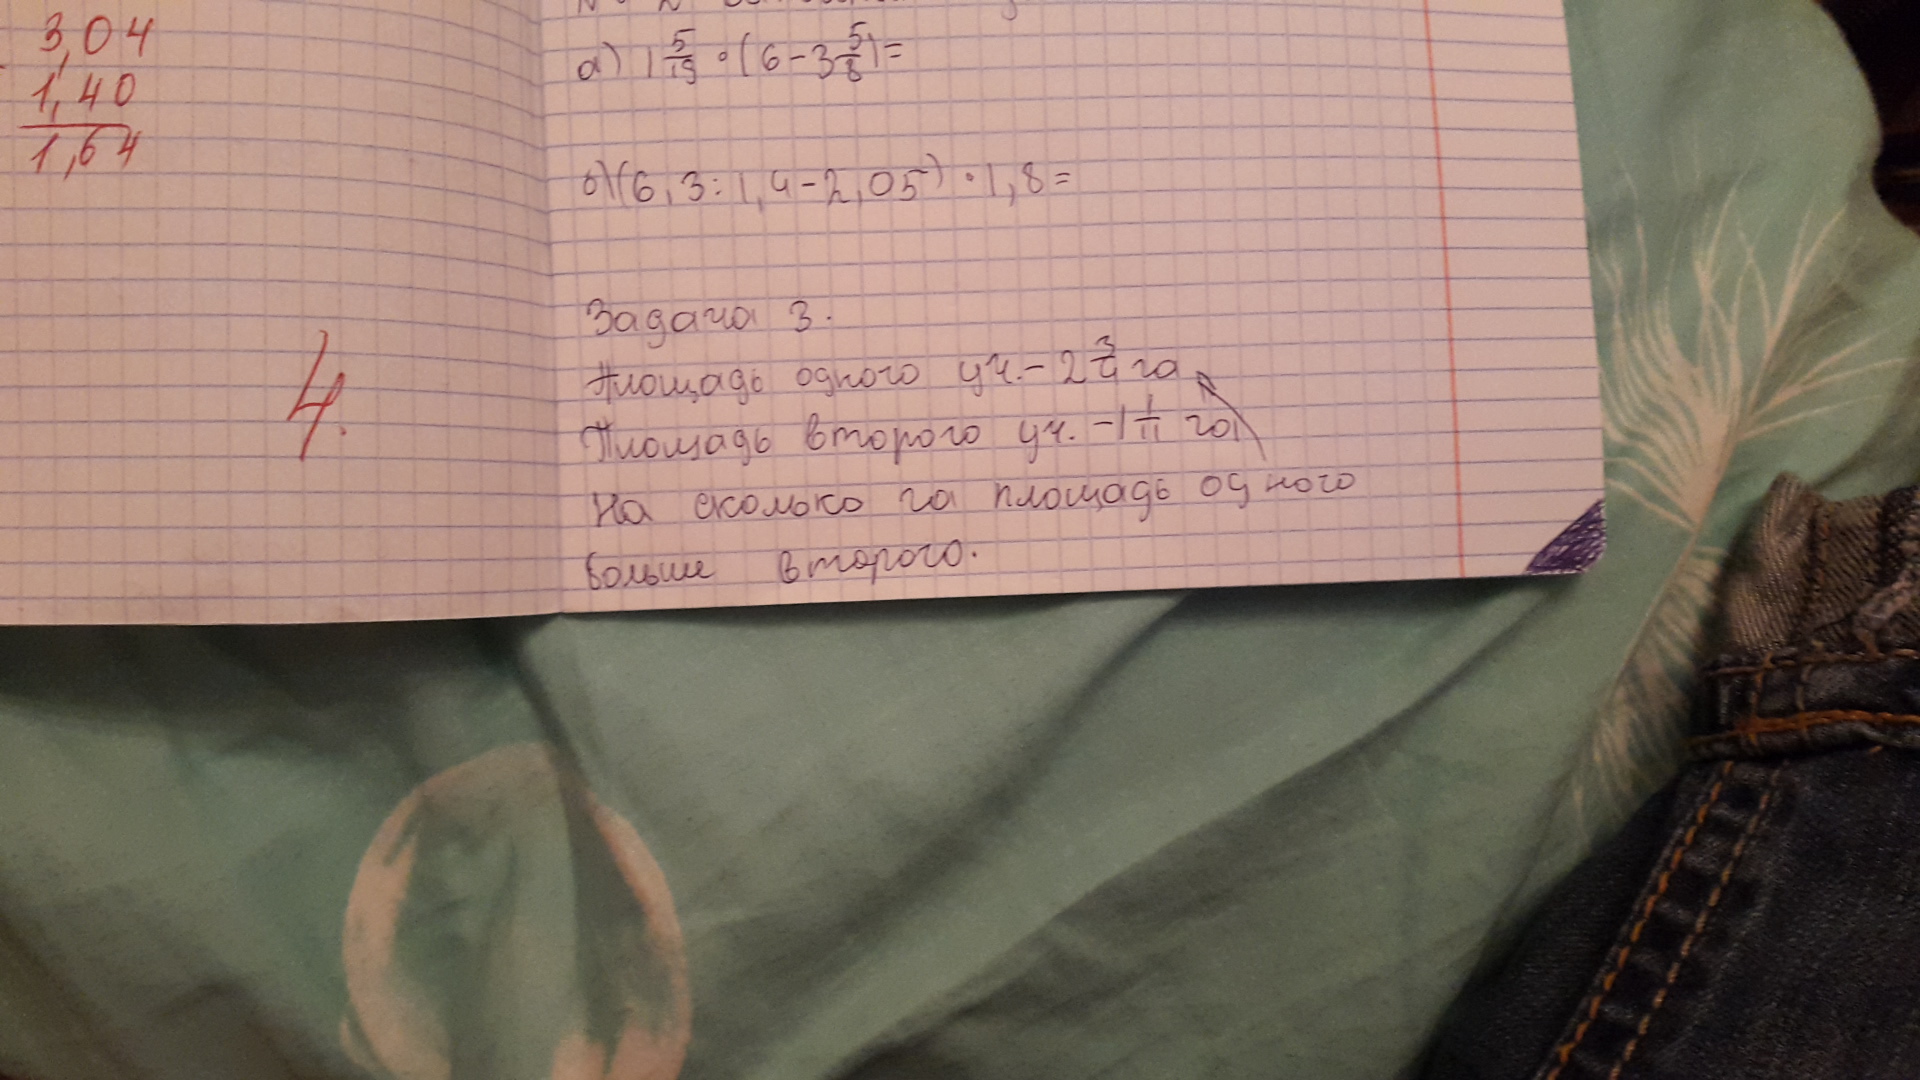 3,04
1,40
1,64
4.
а) 1 5/19 • (6 - 3 5/8) =
б) (6,3 : 1,4 - 2,05) • 1,8 =
Задача 3.
Площадь одного уч. - 2 3/4 га
Площадь второго уч. - 1 1/11 га
На сколько га площадь одного
больше второго.